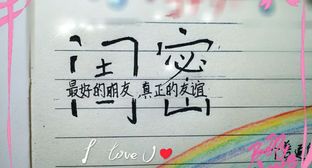 闺密
最好的朋友 真正的友谊
I love U